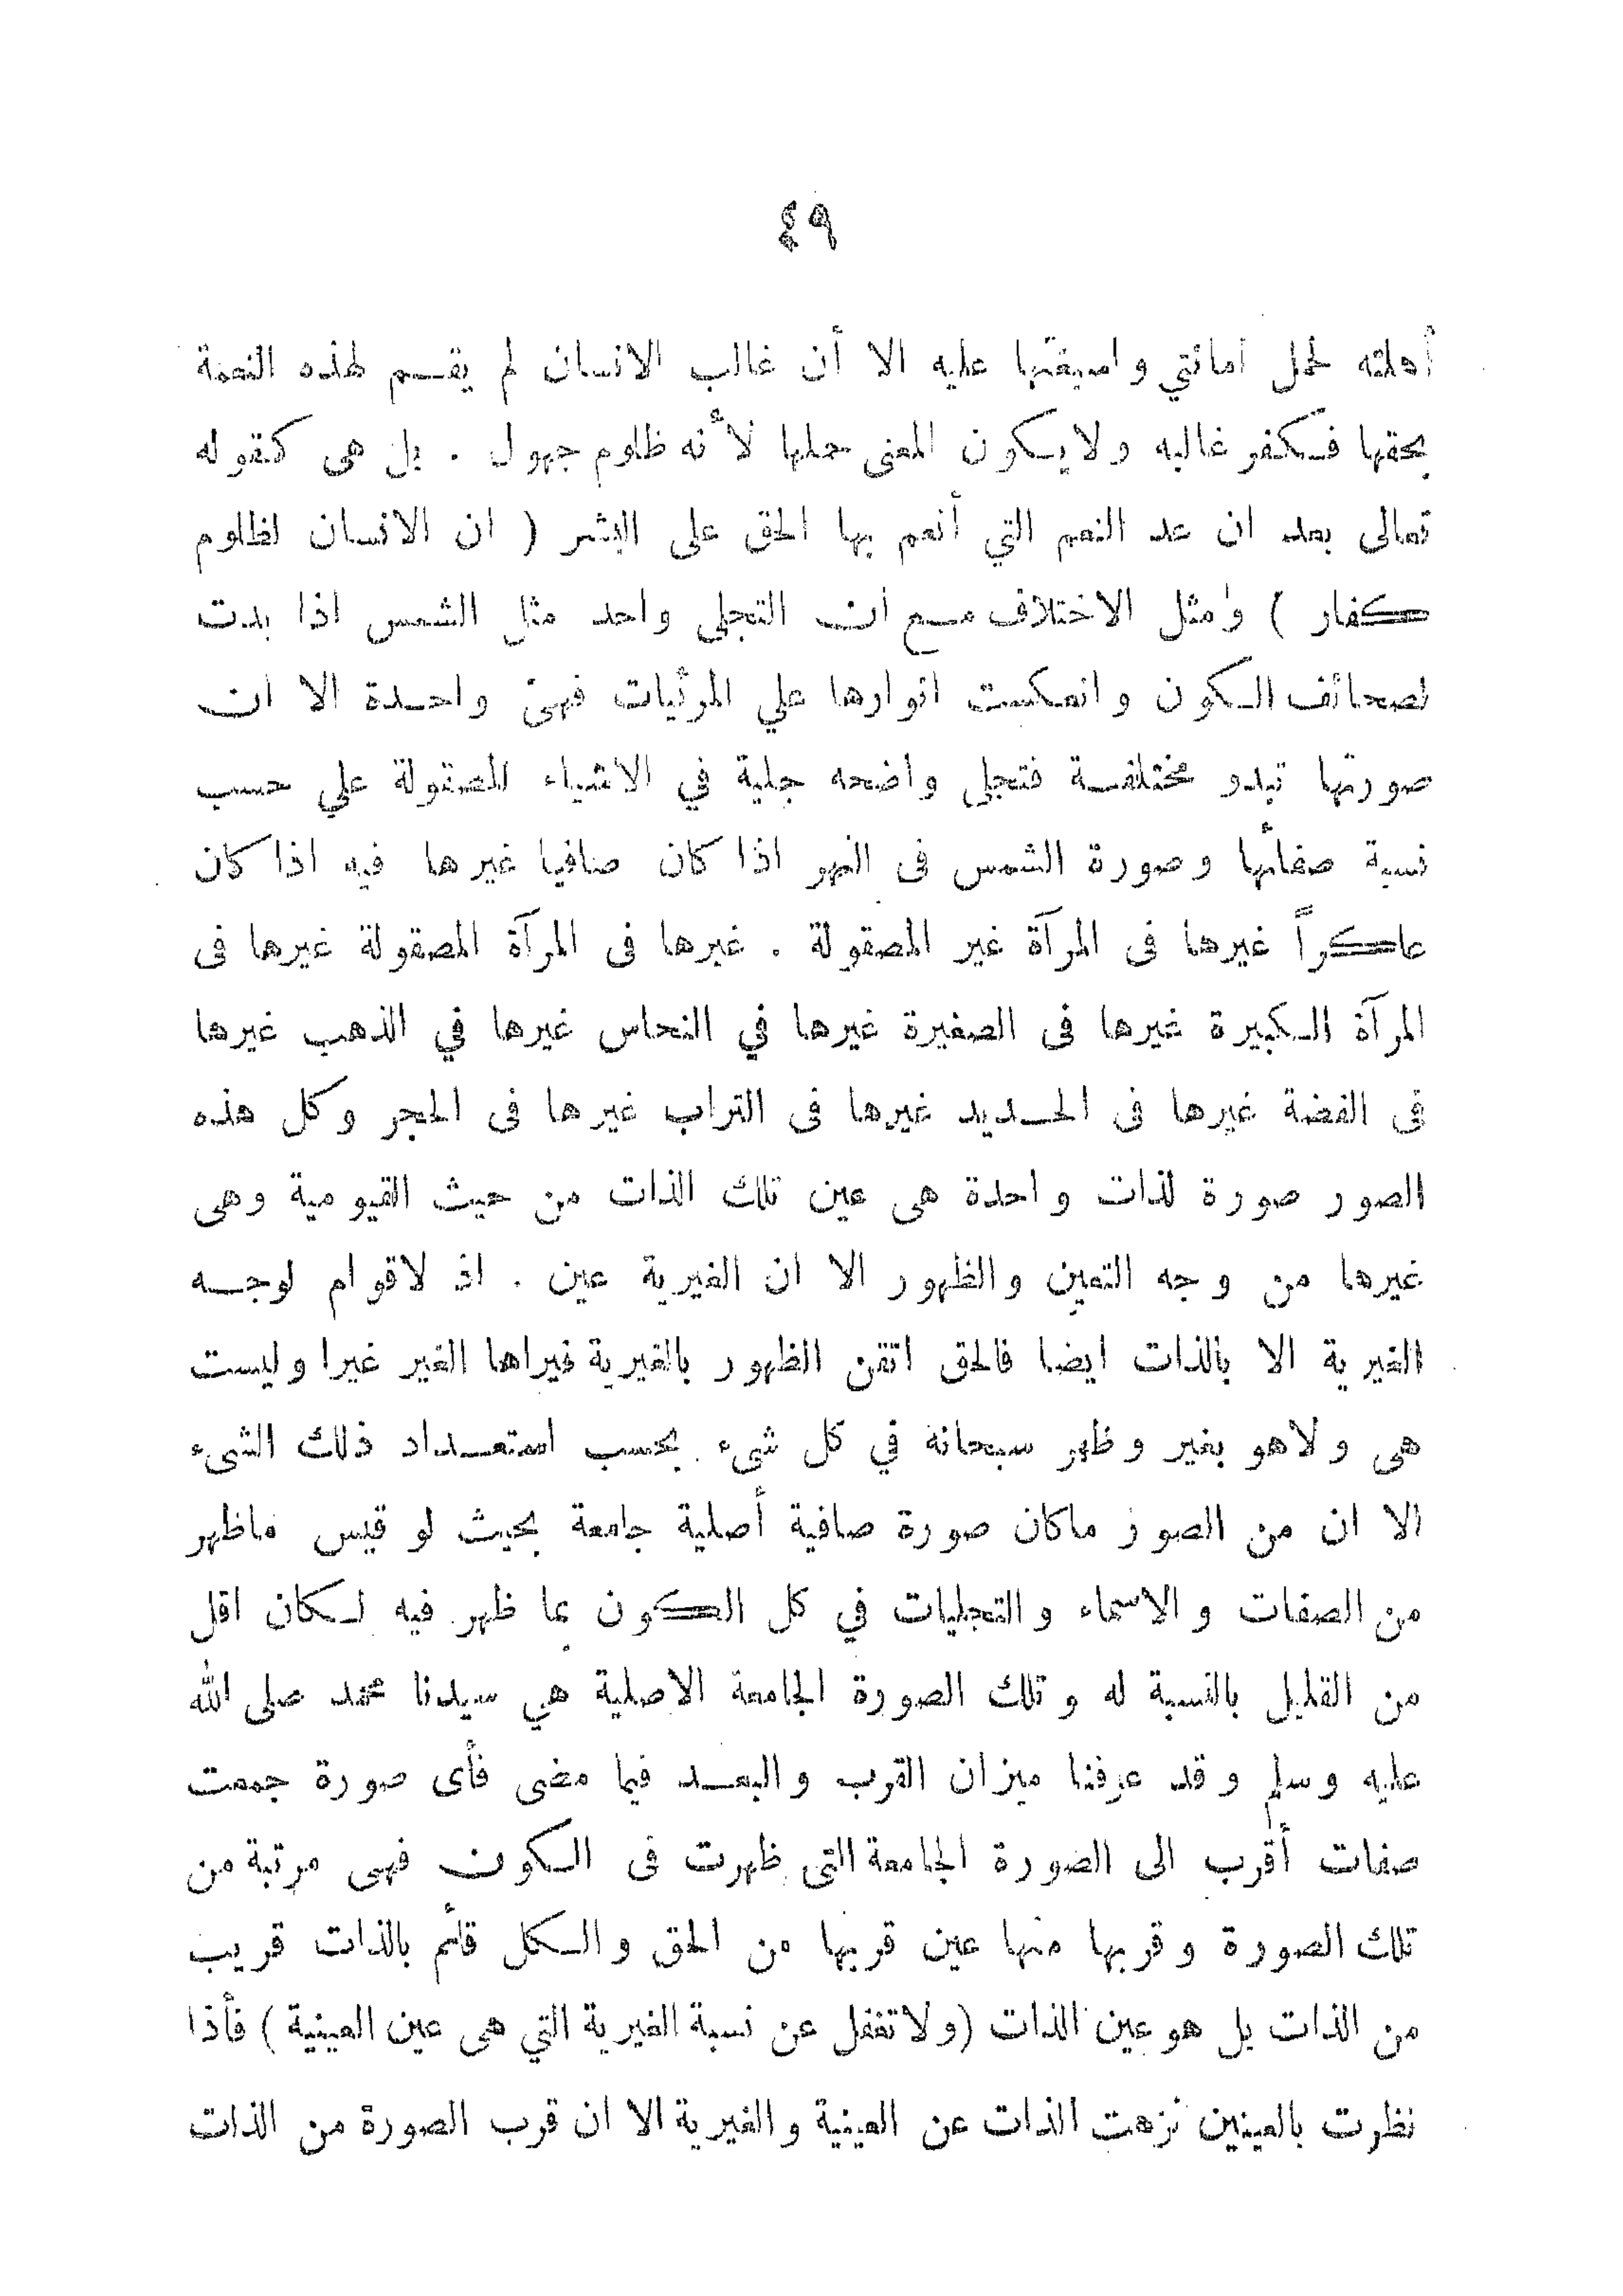 ٤٩
أهلته لحمل امانتي واسبغتها عليه الا أن غالب الانسان لم يقم لهذه النعمة
بحقها فكفر غالبه ولايكون المعنى حملها لأنه ظلوم جهول . بل هى كقوله
تعالى بعد ان عد النعم التي أنعم بها الحق على البشر ( ان الانسان لظلوم
كفار ) ومثل الاختلاف مع ان التجلى واحد مثل الشمس اذا بدت
لصحائف الكون وانعكست انوارها علي المرئيات فهى واحدة الا ان
صورتها تبدو مختلفة فتجلى واضحه جلية في الاشياء المصقولة علي حسب
نسبة صفائها وصورة الشمس فى النهر اذا كان صافيا غيرها فيه اذا كان
عاكراً غيرها فى المرآة غير المصقولة . غيرها فى المرآة المصقولة غيرها فى
المرآة الكبيرة غيرها فى الصغيرة غيرها في النحاس غيرها في الذهب غيرها
فى الفضة غيرها فى الحديد غيرها فى التراب غيرها فى الحجر وكل هذه
الصور صورة لذات واحدة هى عين تلك الذات من حيث القيومية وهى
غيرها من وجه التعين والظهور الا ان الغيرية عين . اذ لاقوام لوجه
الغيرية الا بالذات ايضا فالحق اتقن الظهور بالغيرية فيراها الغير غيرا وليست
هى ولاهو بغير وظهر سبحانه في كل شىء بحسب استعداد ذلك الشىء
الا ان من الصور ماكان صورة صافية أصلية جامعة بحيث لو قيس ماظهر
من الصفات والاسماء والتجليات في كل الكون بما ظهر فيه لكان اقل
من القليل بالنسبة له وتلك الصورة الجامعة الاصلية هي سيدنا محمد صلى الله
عليه وسلم وقد عرفنا ميزان القرب والبعد فيما مضى فأى صورة جمعت
صفات أقرب الى الصورة الجامعة التى ظهرت فى الكون فهى مرتبة من
تلك الصورة وقربها منها عين قربها من الحق والكل قائم بالذات قريب
من الذات بل هو عين الذات (ولاتغفل عن نسبة الغيرية التي هى عين العينية) فأذا
نظرت بالعينين نزهت الذات عن العينية والغيرية الا ان قرب الصورة من الذات